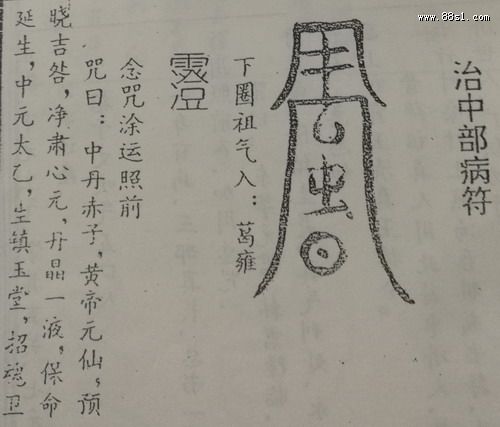 www.88s1.com
治中部病符
下圈祖气入：葛雍
念咒涂运照前
咒曰：中丹赤子，黄帝元仙，预
晓吉咎，净肃心元，丹晶一液，保命
延生，中元太乙，生镇玉堂，招魂卫